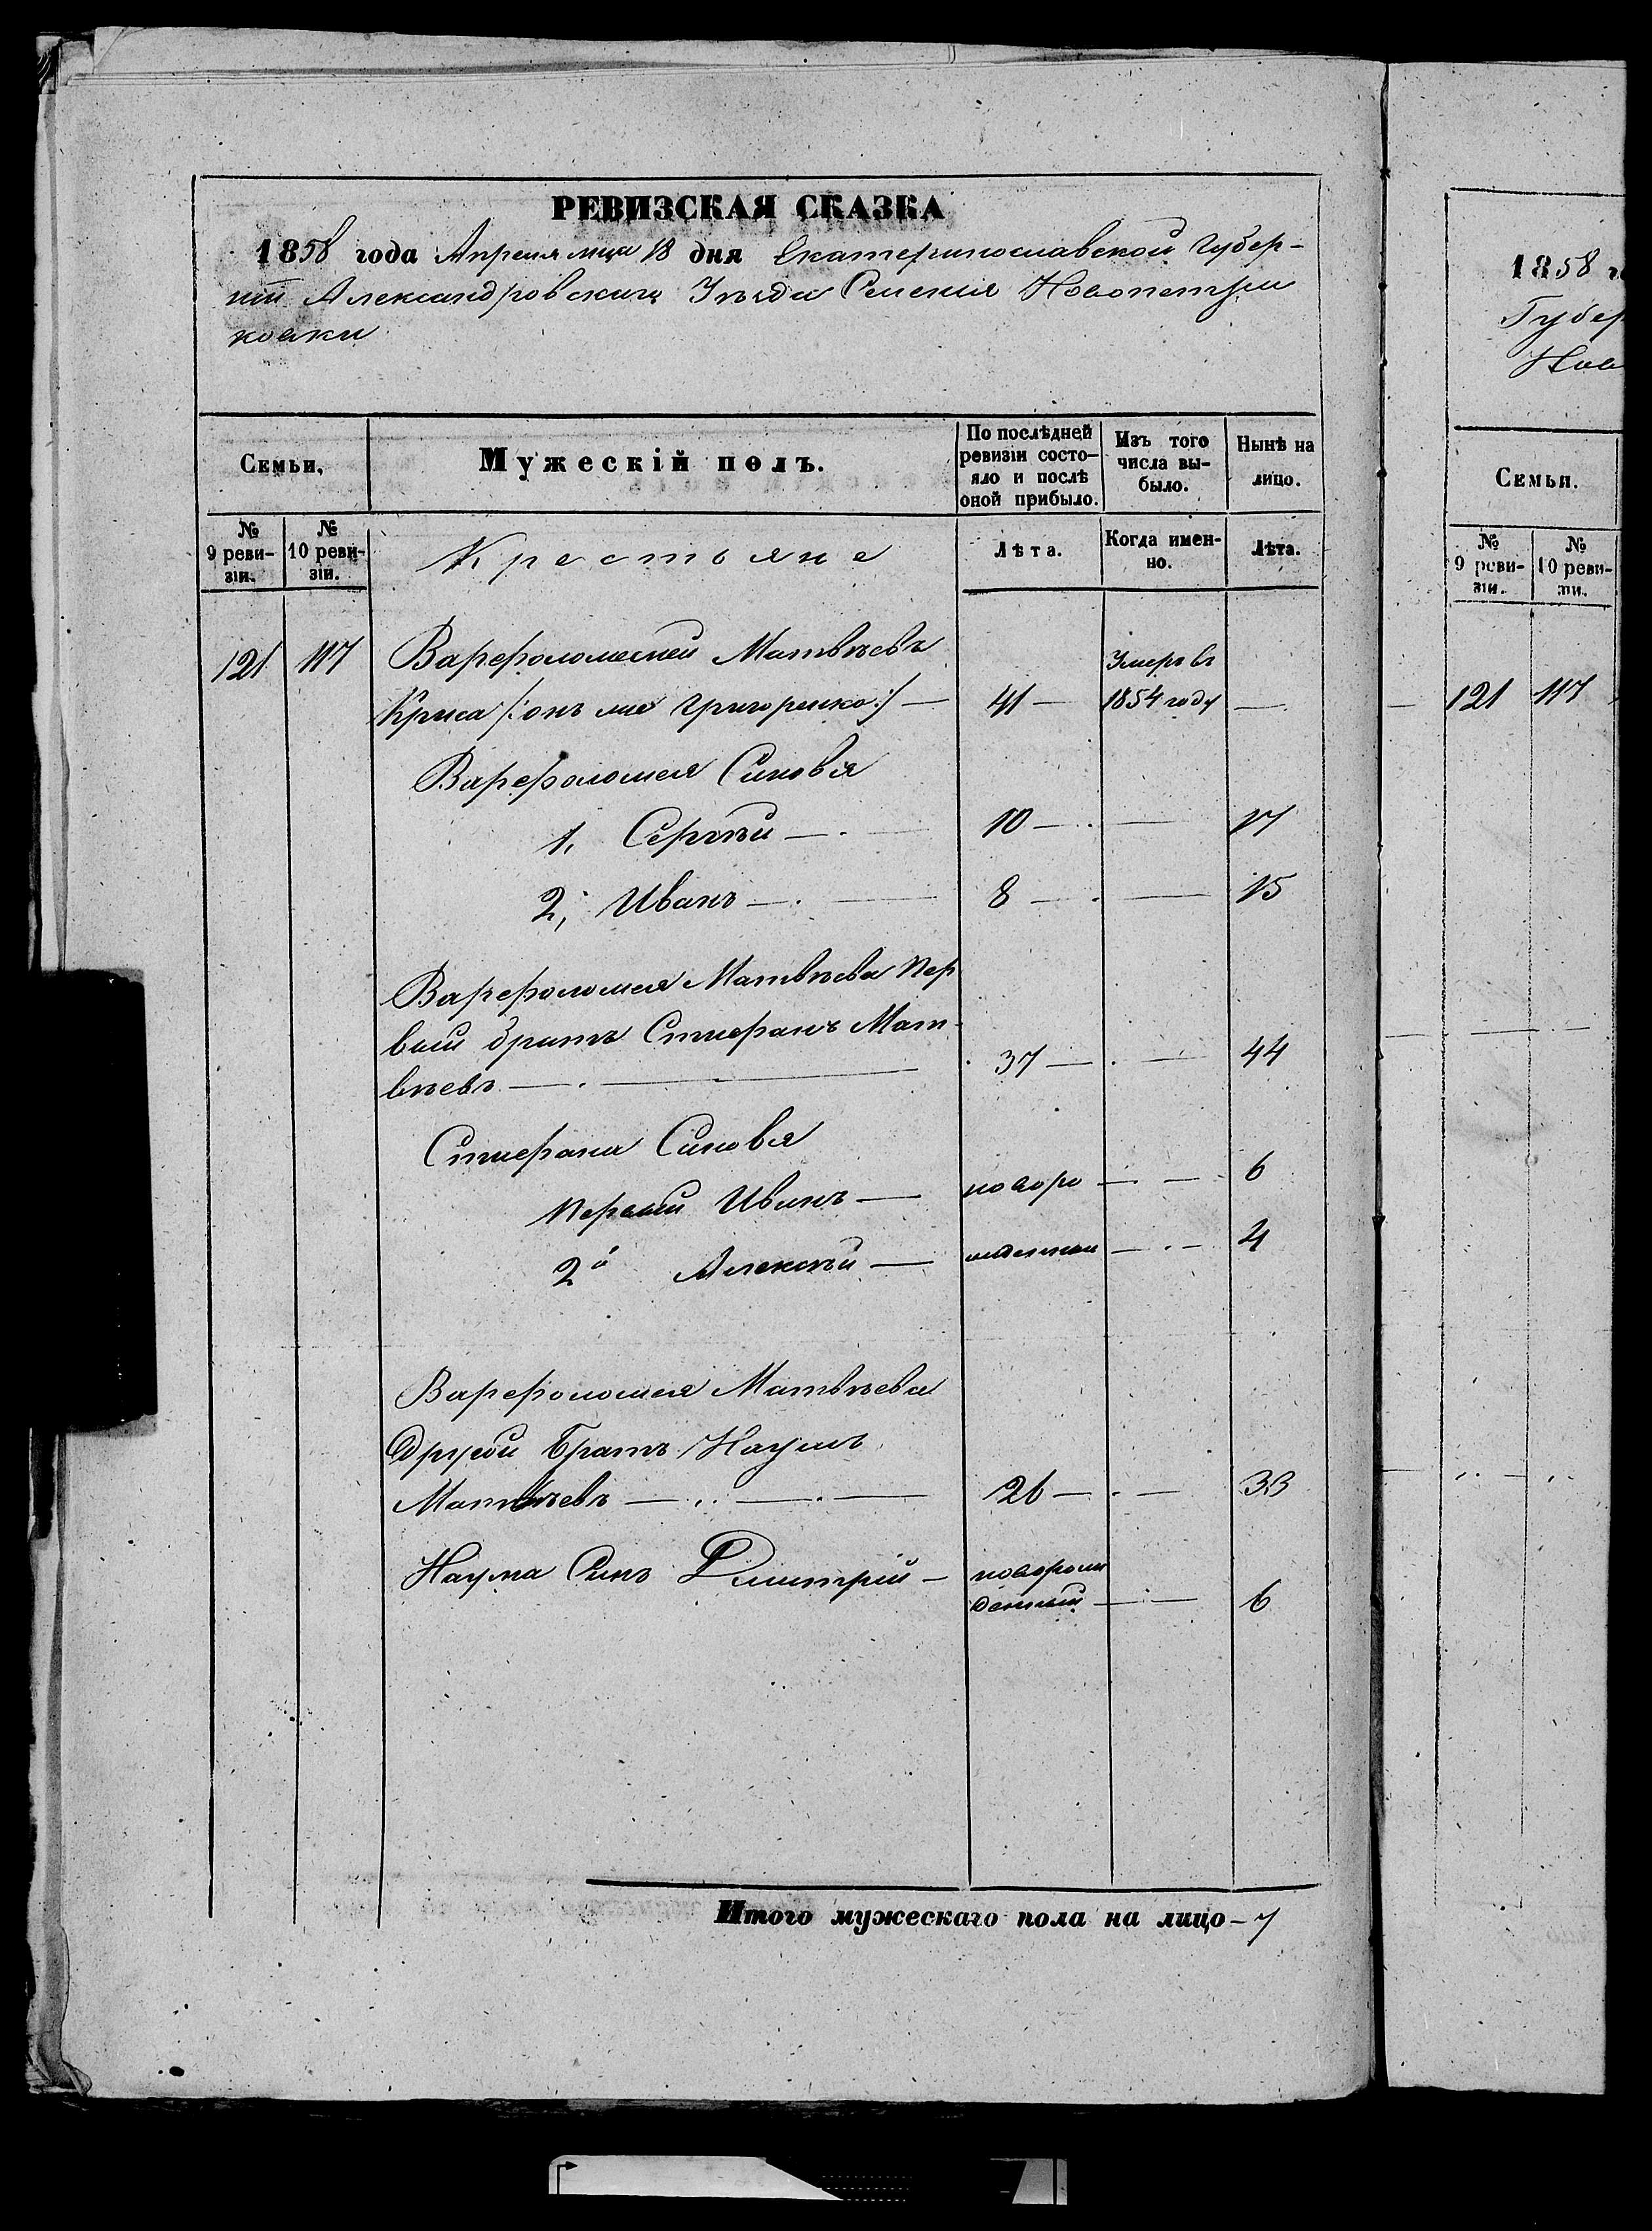 РЕВИЗСКАЯ СКАЗКА
1858 года Апреля мца 18 дня Екатеринославской Губер-
нии Александровскаго Уезда Селения Новопетри
ковки
Семьи,
Мужескій полъ.
По послѣдней ревизіи состо-
яло и послѣ
оной прибыло.
Изъ того
числа вы-
было.
Нынѣ на
лицо.
№
9 реви-
зіи.
№
10 реви-
зіи.
Крестьяне
Лѣта.
Когда имен-
но.
Лѣта.
121 117 Варфоломей Матвѣевъ Умеръ въ
Криса /: онъ же Григоренко :/ — 41 — 1854 году —
Варфоломея Синовья
1, Сергѣй — 10 — — 17
2, Иванъ — 8 — — 15
Варфоломея Матвѣева Пер
вый братъ Стефанъ Мат-
вѣевъ — 37 — — 44
Стефана Синовья
Первый Иванъ — новоро — — 6
2й Алексѣй — жденные — — 4
Варфоломея Матвѣева
Другой Братъ Наумъ
Матвѣевъ — 26 — — 33
Наума Синъ Дмитрій — новорож
денный — — 6
Итого мужескаго пола на лицо – 7
1858 г
Губер
Нов
Семьи.
№
9 реви-
зіи.
№
10 реви-
зіи.
121 117